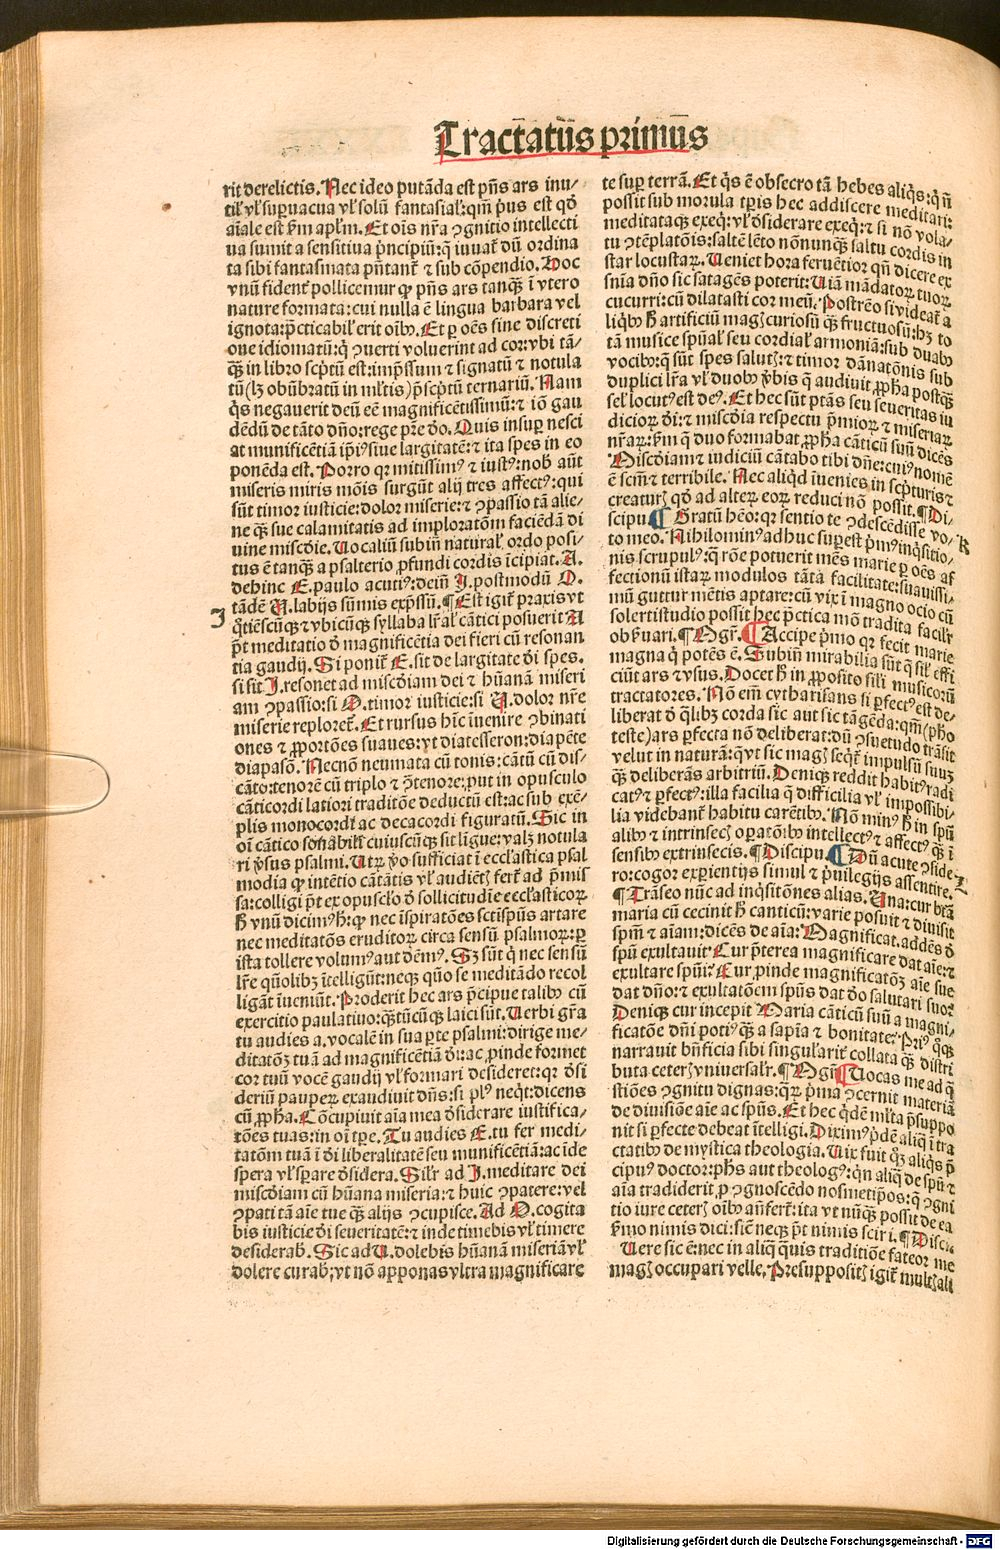 Tractatus primus
rit derelictis. Nec ideo putāda est pn̄s ars inu-
til' vl' suꝑuacua vl' solū fantasial': qm̄ pͥus est qd̄
aīale est ẜm apl'm. Et oīs nr̄a ꝯgnitio intellecti
ua sumit a sensitiua pͥncipiū: q̄ iuuat̄ dū ordina
ta sibi fantasmata pn̄tant̄ ⁊ sub cōpendio. Hoc
vnū fident̄ pollicemur ꝙ pn̄s ars tanqȝ ī vtero
nature formata: cui nulla ē lingua barbara vel
ignota: p̄cticabil' erit oībꝰ. Et ꝑ oēs sine discreti
one idiomatū: qͥ ꝯuerti voluerint ad cor: vbi tā-
qȝ in libro scͥptū est: imp̄ssum ⁊ signatū ⁊ notula
tū (lȝ obūbratū in ml'tis) p̄scͥptū ternariū. Nam
qͥs negauerit deū eē magnificētissimū: ⁊ iō gau
dēdū de tāto dn̄o: rege pr̄e d̄o. Quis insuꝑ nesci
at munificētiā ip̄iꝰ siue largitatē: ⁊ ita spes in eo
ponēda est. Porro qꝛ mitissimꝰ ⁊ iustꝰ: nob̄ aūt
miseris miris mōis surgūt alij tres affectꝰ: qui
sūt timor iusticie: dolor miserie: ⁊ ꝯpassio tā alie-
ne qȝ sue calamitatis ad imploratōm faciēdā di
uine misc̄die. Vocaliū subin̄ natural' ordo posi-
tus ē tanqȝ a psalterio ꝓfundi cordis īcipiat. A.
dehinc E. paulo acutiꝰ: dein̄ I. postmodū O.
tādē V. labijs sūmis exp̄ssū. ¶ Est igit̄ praxis vt
J
qͦtiēscūqȝ ⁊ vbicūqȝ syllaba lr̄al' cātici posuerit A
p̄t meditatio d̄ magnificētia dei fieri cū resonan
tia gaudij. Si ponit̄ E. sit de largitate d̄i spes.
si sit I. resonet ad misc̄diam dei ⁊ hūanā miseri
am ꝯpassio: si O. timor iusticie: si V. dolor nr̄e
miserie reploret̄. Et rursus hīc īuenire ꝯbinati
ones ⁊ ꝓportōes suaues: vt diatesseron: diapēte
diapasō. Necnō neumata cū tonis: cātū cū dis-
cāto: tenorē cū triplo ⁊ ꝯ̄tenore: put in opusculo
cāticordi latiori traditōe deductū est: ac sub exē-
plis monocordi ac decacordi figuratū. Sic in
oī cātico sonabili cuiuscūqȝ sit līgue: valȝ notula
ri v̓sus psalmi. Utꝝ v̓o sufficiat ī eccl'astica psal
modia ꝙ intētio cātātis vl' audiētȝ ferat̄ ad p̄mis
sa: colligi p̄t ex opusclo d̄ sollicitudīe eccl'asticoꝝ
ħ vnū dicimꝰ ħ: ꝙ nec īspiratōes sctīspūs artare
nec meditatōs eruditoꝝ circa sensū psalmoꝝ: ꝑ
ista tollere volumꝰ aut dēmꝰ. Sȝ sūt qͥ nec sensū
lr̄e qn̄olibȝ ītelligūt: neqȝ quō se meditādo recol
ligāt īueniūt. Proderit hec ars p̄cipue talibꝰ cū
exercitio paulatiuo: qȝtūcūqȝ laici sūt. Verbi gr̄a
tu audies a. vocalē in sua ꝑte psalmi: dirige me-
ditatōȝ tuā ad magnificētiā diuīac ꝓinde formet
cor tuū vocē gaudij vl' formari desideret: qꝛ d̄si
deriū pauperꝝ exaudiuit dn̄s: si plꝰ neqͥt: dicens
cū ꝓpha. Cōcupiuit aīa mea d̄siderare iustifica-
tōes tuas: in oī tp̄e. Tu audies E. tu fer medi-
tatōm tuā ī d̄i liberalitatē seu munificētiā: ac ide
spera vl' sꝑare d̄sidera. Sil'r ad I. meditare dei
misc̄diam cū hūana miseria: ⁊ huic ꝯpatere: vel
ꝯpati tā aīe tue qȝ alijs ꝯcupisce. Ad O. cogita
bis iusticie d̄i seueritatē: ⁊ inde timebis vl' timere
desiderab̄. Sic ad V. dolebis hūanā miseriā vl'
dolere curab̄: vt nō apponas vltra magnificare
te suꝑ terrā. Et qͥs ē obsecro tā hebes aliqͥs: qͥn̄
possit sub morula tp̄is hec addiscere meditari:
meditataqȝ exeqͥ: vl' d̄siderare exeqͥ: ⁊ si nō vola-
tu ꝯtēplatōis: saltē lēto nōnunqȝ saltu cordis in
star locustaꝝ. Veniet hora feruētior qn̄ dicere ex
sn̄ia dn̄o sic satagēs poterit: Viā mādatoꝝ tuoꝝ
cucurri: cū dilatasti cor meū. Postrēo si videat̄ a
liqͥbꝰ ħ artificiū magȝ curiosū qȝ fructuosū: hȝ to
tā musice spūal' seu cordial' armoniā: sub duabꝰ
vocibꝰ: q̄ sūt spes salutȝ: ⁊ timor dānatōnis sub
duplici lr̄a vl' duobꝰ v̓bis q̄ audiuit ꝓpha postqȝ
sel' locutꝰ est deꝰ. Et hec sūt ptās seu seueritas iu
dicioꝝ d̄i: ⁊ misc̄dia respectu p̄mioꝝ ⁊ miseriaꝝ
nr̄aꝝ: ẜm q̄ duo formabat ꝓpha cāticū suū dicēs
Misc̄diam ⁊ iudiciū cātabo tibi dn̄e: cuiꝰ nomē
ē scm̄ ⁊ terribile. Nec aliqͥd īuenies in scͥpturis ⁊
creaturȝ qd̄ ad alterꝝ eoꝝ reduci nō possit. ¶ Di-
scipu. ¶ Gratū hēo: qꝛ sentio te ꝯdescēdisse vo-
K
to meo. Nihilominꝰ adhuc suꝑest pͥmꝰ inqͥsitio-
nis scrupulꝰ: q̄ rōe potuerit mēs marie ꝑ oēs af
fectionū istaꝝ modulos tāta facilitate: suauissi-
mū guttur mētis aptare: cū vix ī magno ocio cū
solerti studio possit hec p̄ctica mō tradita facil'r
obẜuari. ¶ Mgr̄. ¶ Accipe pͥmo qꝛ fecit marie
magna qͥ potēs ē. Subin̄ mirabilia sūt q̄ sil' effi
ciūt ars ⁊ vsus. Docet ħ in ꝓposito sil'i musicorū
tractatores. Nō em̄ cytharisans si ꝑfectꝰ est de-
liberat d̄ qͣlibȝ corda sic aut sic tāgēda: qm̄ (pħo
teste) ars ꝑfecta nō deliberat: dū ꝯsuetudo trāsit
velut in naturā: qͥ vt sic magȝ seqͥt̄ impulsū suuȝ
qȝ deliberās arbitriū. Deniqȝ reddit habitꝰ radi
catꝰ ⁊ ꝑfectꝰ: illa facilia q̄ difficilia vl' impossibi-
lia videbant̄ habitu carētibꝰ. Nō minꝰ ħ in spūa
alibꝰ ⁊ intrinsecȝ oꝑatōibꝰ intellectꝰ ⁊ affectꝰ qȝ ī
sensibꝰ extrinsecis. ¶ Discipu. ¶ Dū acute ꝯside-
L
ro: cogor exꝑientijs simul ⁊ pͥuilegijs assentire.
¶ Trāseo nūc ad inqͥsitōnes alias. Una: cur btā
maria cū cecinit ħ canticū: varie posuit ⁊ diuisit
spm̄ ⁊ aīam: dicēs de aīa: Magnificat. addēs d̄
spū exultauit. Cur p̄terea magnificare dat aīe: ⁊
exultare spūi? Cur ꝓinde magnificatōȝ aīe sue
dat dn̄o: ⁊ exultatōem spūs dat d̄o salutari suo?
Deniqȝ cur incepit Maria cāticū suū a magni-
ficatōe dn̄i potiꝰ qȝ a sapīa ⁊ bonitate? Priꝰ qͦqȝ
narrauit bn̄ficia sibi singularit̄ collata qȝ distri
buta ceterȝ vniuersal'r. ¶ Mgr̄. ¶ Vocas me ad q̄
stiōes ꝯgnitu dignas: qͣꝝ pͥma ꝯcernit materiā
de diuisiōe aīe ac spūs. Et hec qͥdē ml'ta p̄suppo
nit si ꝑfecte debeat ītelligi. Diximꝰ pͥdē aliqͣ ī tra
ctatibꝰ de mystica theologia. Vix fuit qͥȝ aliqͥs p̄
cipuꝰ doctor: pħs aut theologꝰ: qͥn aliqͥ de spū ⁊
aīa tradiderit ꝓ ꝯgnoscēdo nosmetip̄os: q̄ ꝯgni
tio iure ceterȝ oībꝰ anfert̄: ita vt nūqȝ possit de ea
ẜmo nimis dici: siē neqȝ p̄t nimis sciri. ¶ Disci.
Vere sic ē: nec in aliqͣ quīs traditiōe fateor me
magȝ occupari velle. Presuppositȝ igit̄ multȝ ali
Digitalisierung gefördert durch die Deutsche Forschungsgemeinschaft - DFG